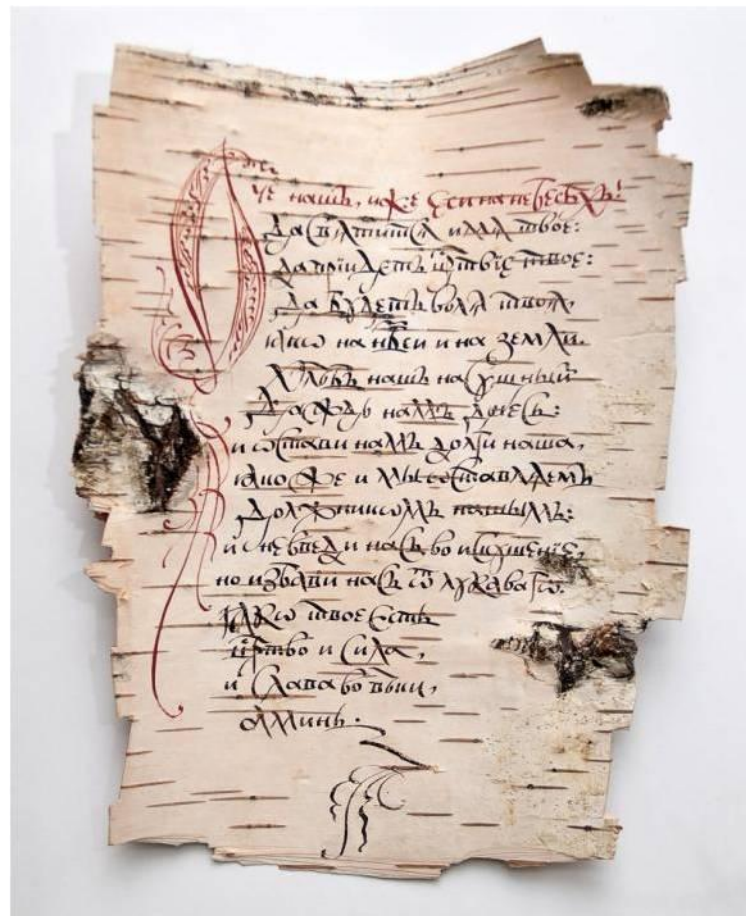 Оче нашъ, иже еси на небесѣхъ!
Да свѧтитсѧ имѧ твое:
да прїидетъ цр҃твїе твое:
да будетъ волѧ твоѧ,
ꙗкѡ на нб҃си и на земли.
Хлѣбъ нашъ насущный
даждь намъ днесь:
и ѡстави намъ долги наша,
ꙗкоже и мы ѡставлѧемъ
должникѡмъ нашымъ:
и не введи насъ во искушенїе,
но избави насъ ѿ лукавагѡ.
ꙗкѡ твое есть
цр҃тво и сила,
и слава во вѣки,
аминь.